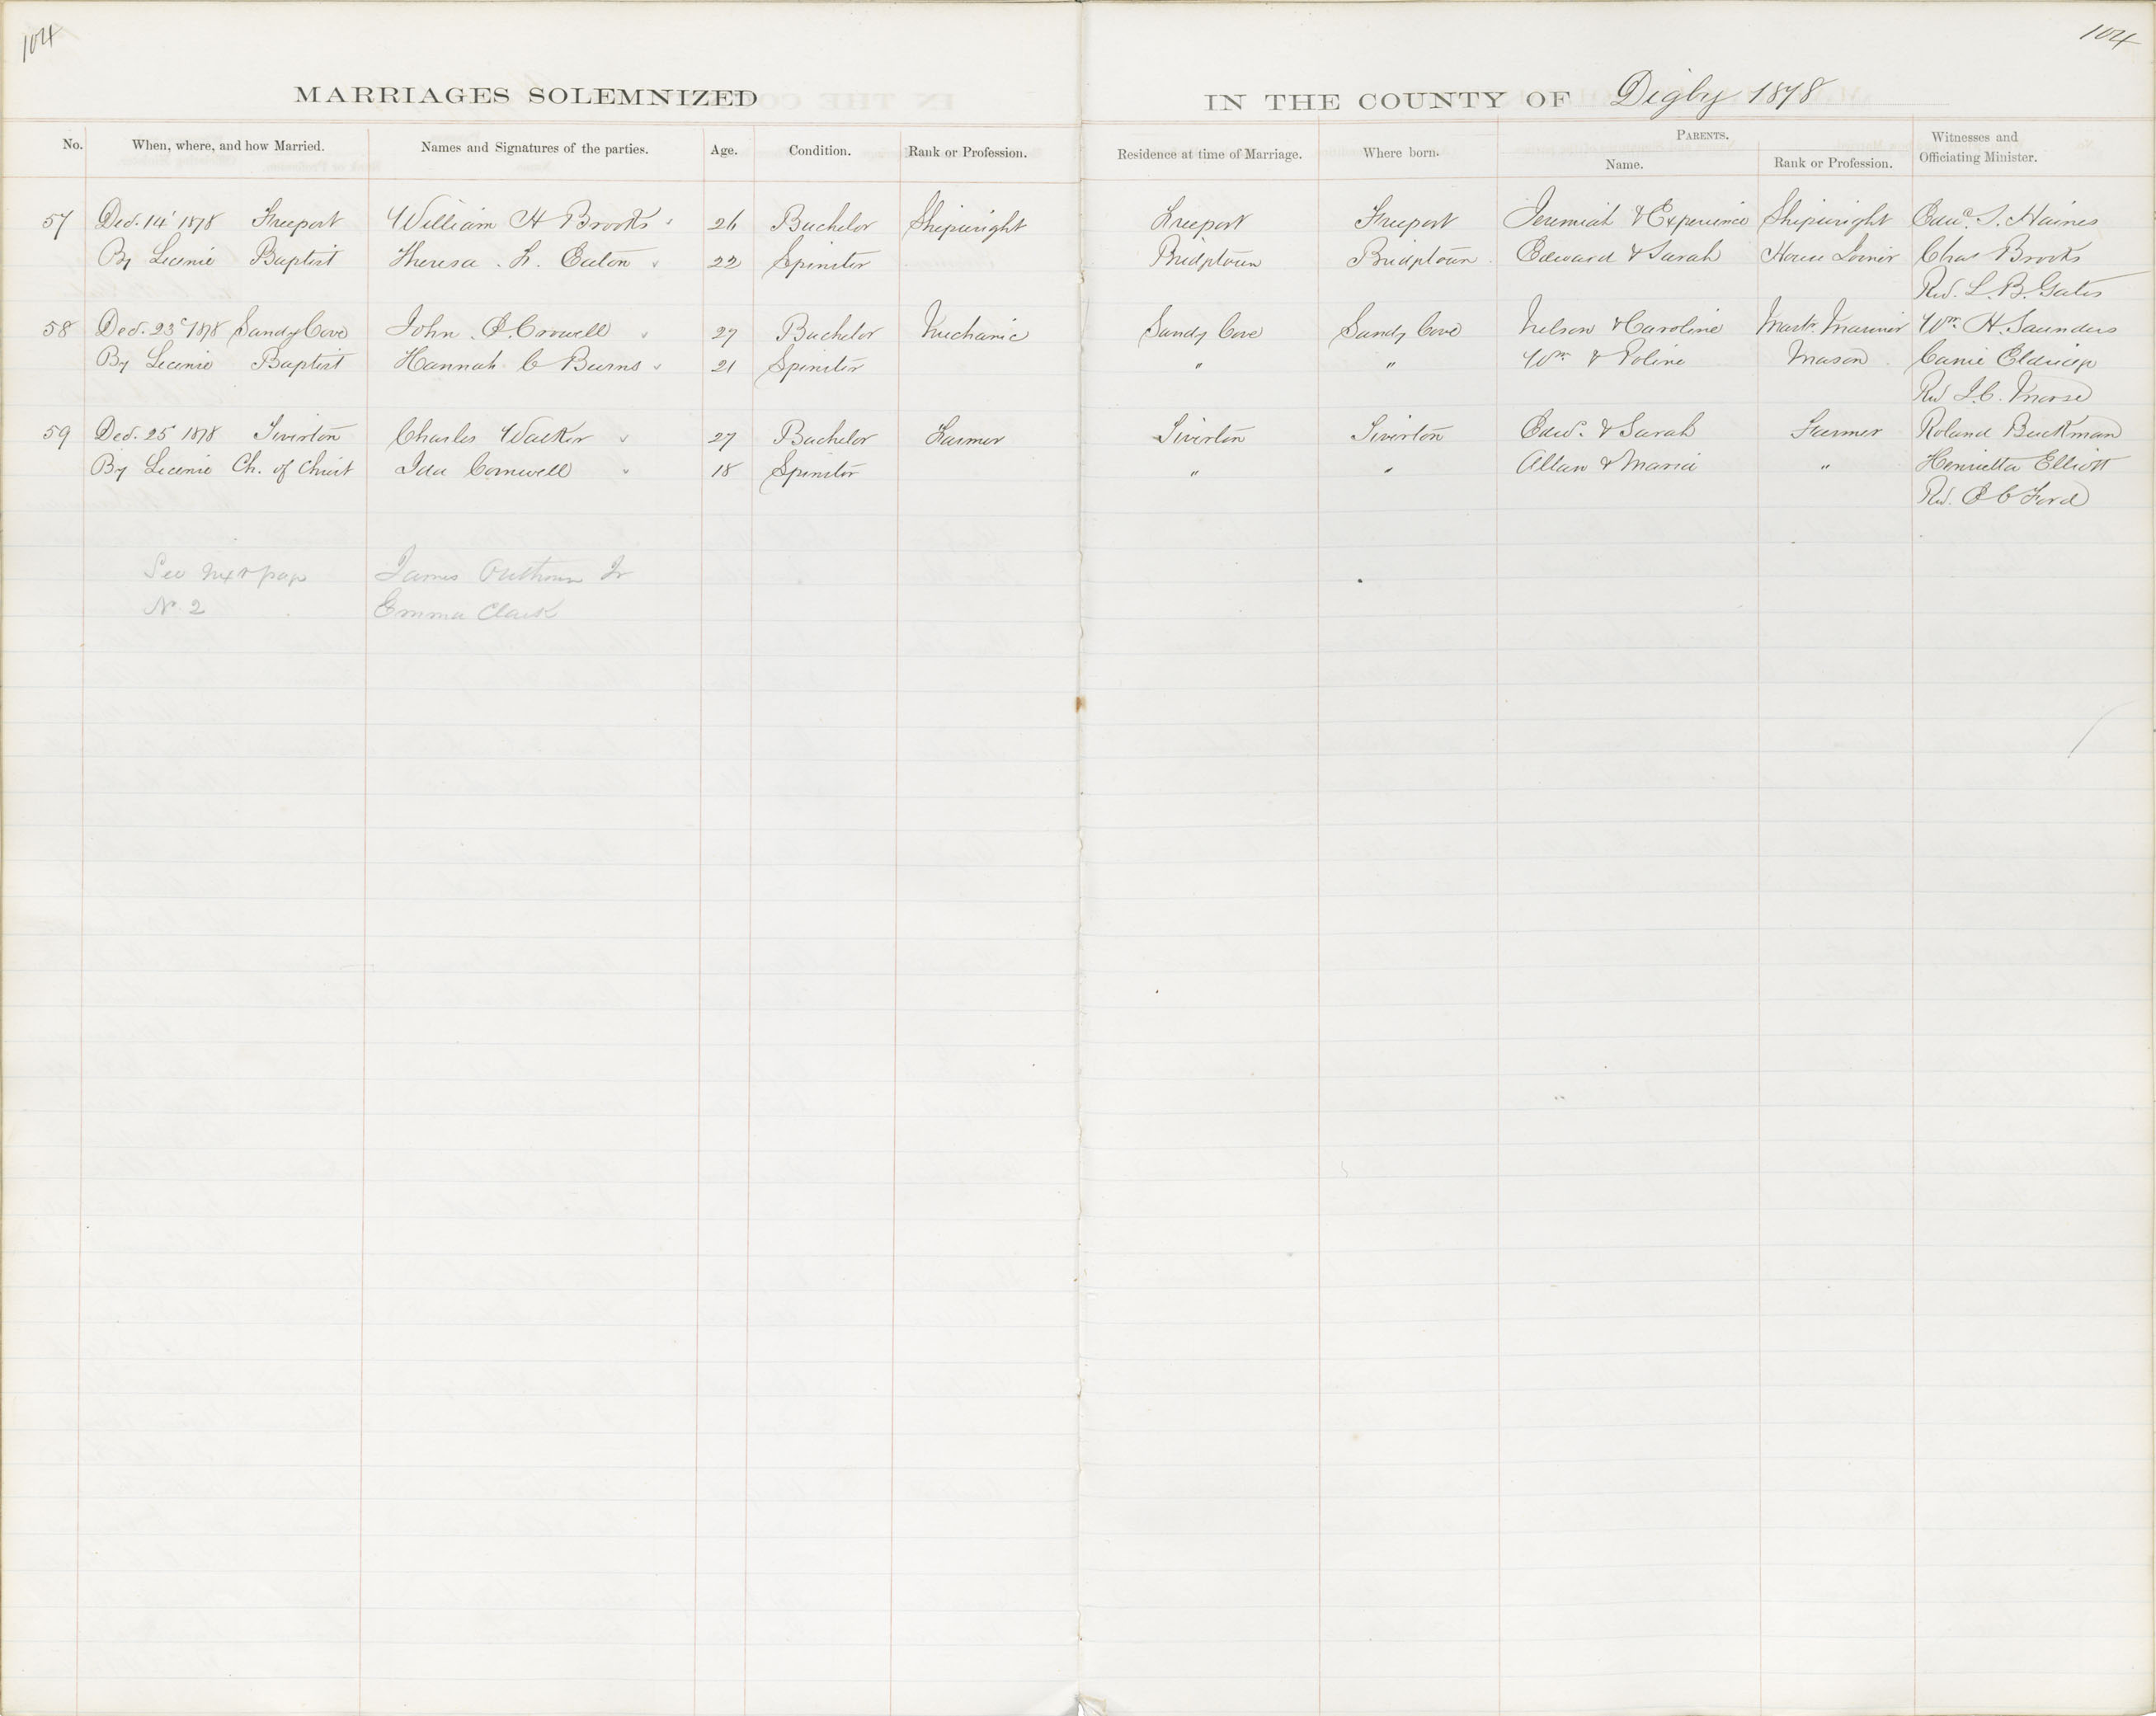 104
104
MARRIAGES SOLEMNIZED IN THE COUNTY OF Digby 1878
No. When, where, and how Married. Names and Signatures of the parties. Age. Condition. Rank or Profession. Residence at time of Marriage. Where born. PARENTS. Name. Rank or Profession. Witnesses and Officiating Minister.
57 Dec. 14 1878 Freeport William H Brooks 26 Bachelor Shipwright Freeport Freeport Jeremiah & Experience Shipwright Edwd. S. Haines
By License Baptist Theresa. L. Eaton 22 Spinster Bridgetown Bridgetown Edward & Sarah House Joiner Chas Brooks
Rev. L. B. Gates
58 Dec. 23d 1878 Sandy Cove John. E. Crowell 27 Bachelor Mechanic Sandy Cove Sandy Cove Nelson & Caroline Mastr. Mariner Wm. H. Saunders
By License Baptist Hannah C Burns 21 Spinster " " Wm & Poline Mason Eldridge
Rev J. C. Morse
59 Dec. 25 1878 Tiverton Charles Walker 27 Bachelor Farmer Tiverton Tiverton Edwd. & Sarah Farmer Roland Buckman
By License Ch. of Christ Ida Cornwell 18 Spinster " " Allan & Maria " Henrietta Elliott
Rev. E C Ford
See next page James Outhouse Jr
No 2 Emma Clark